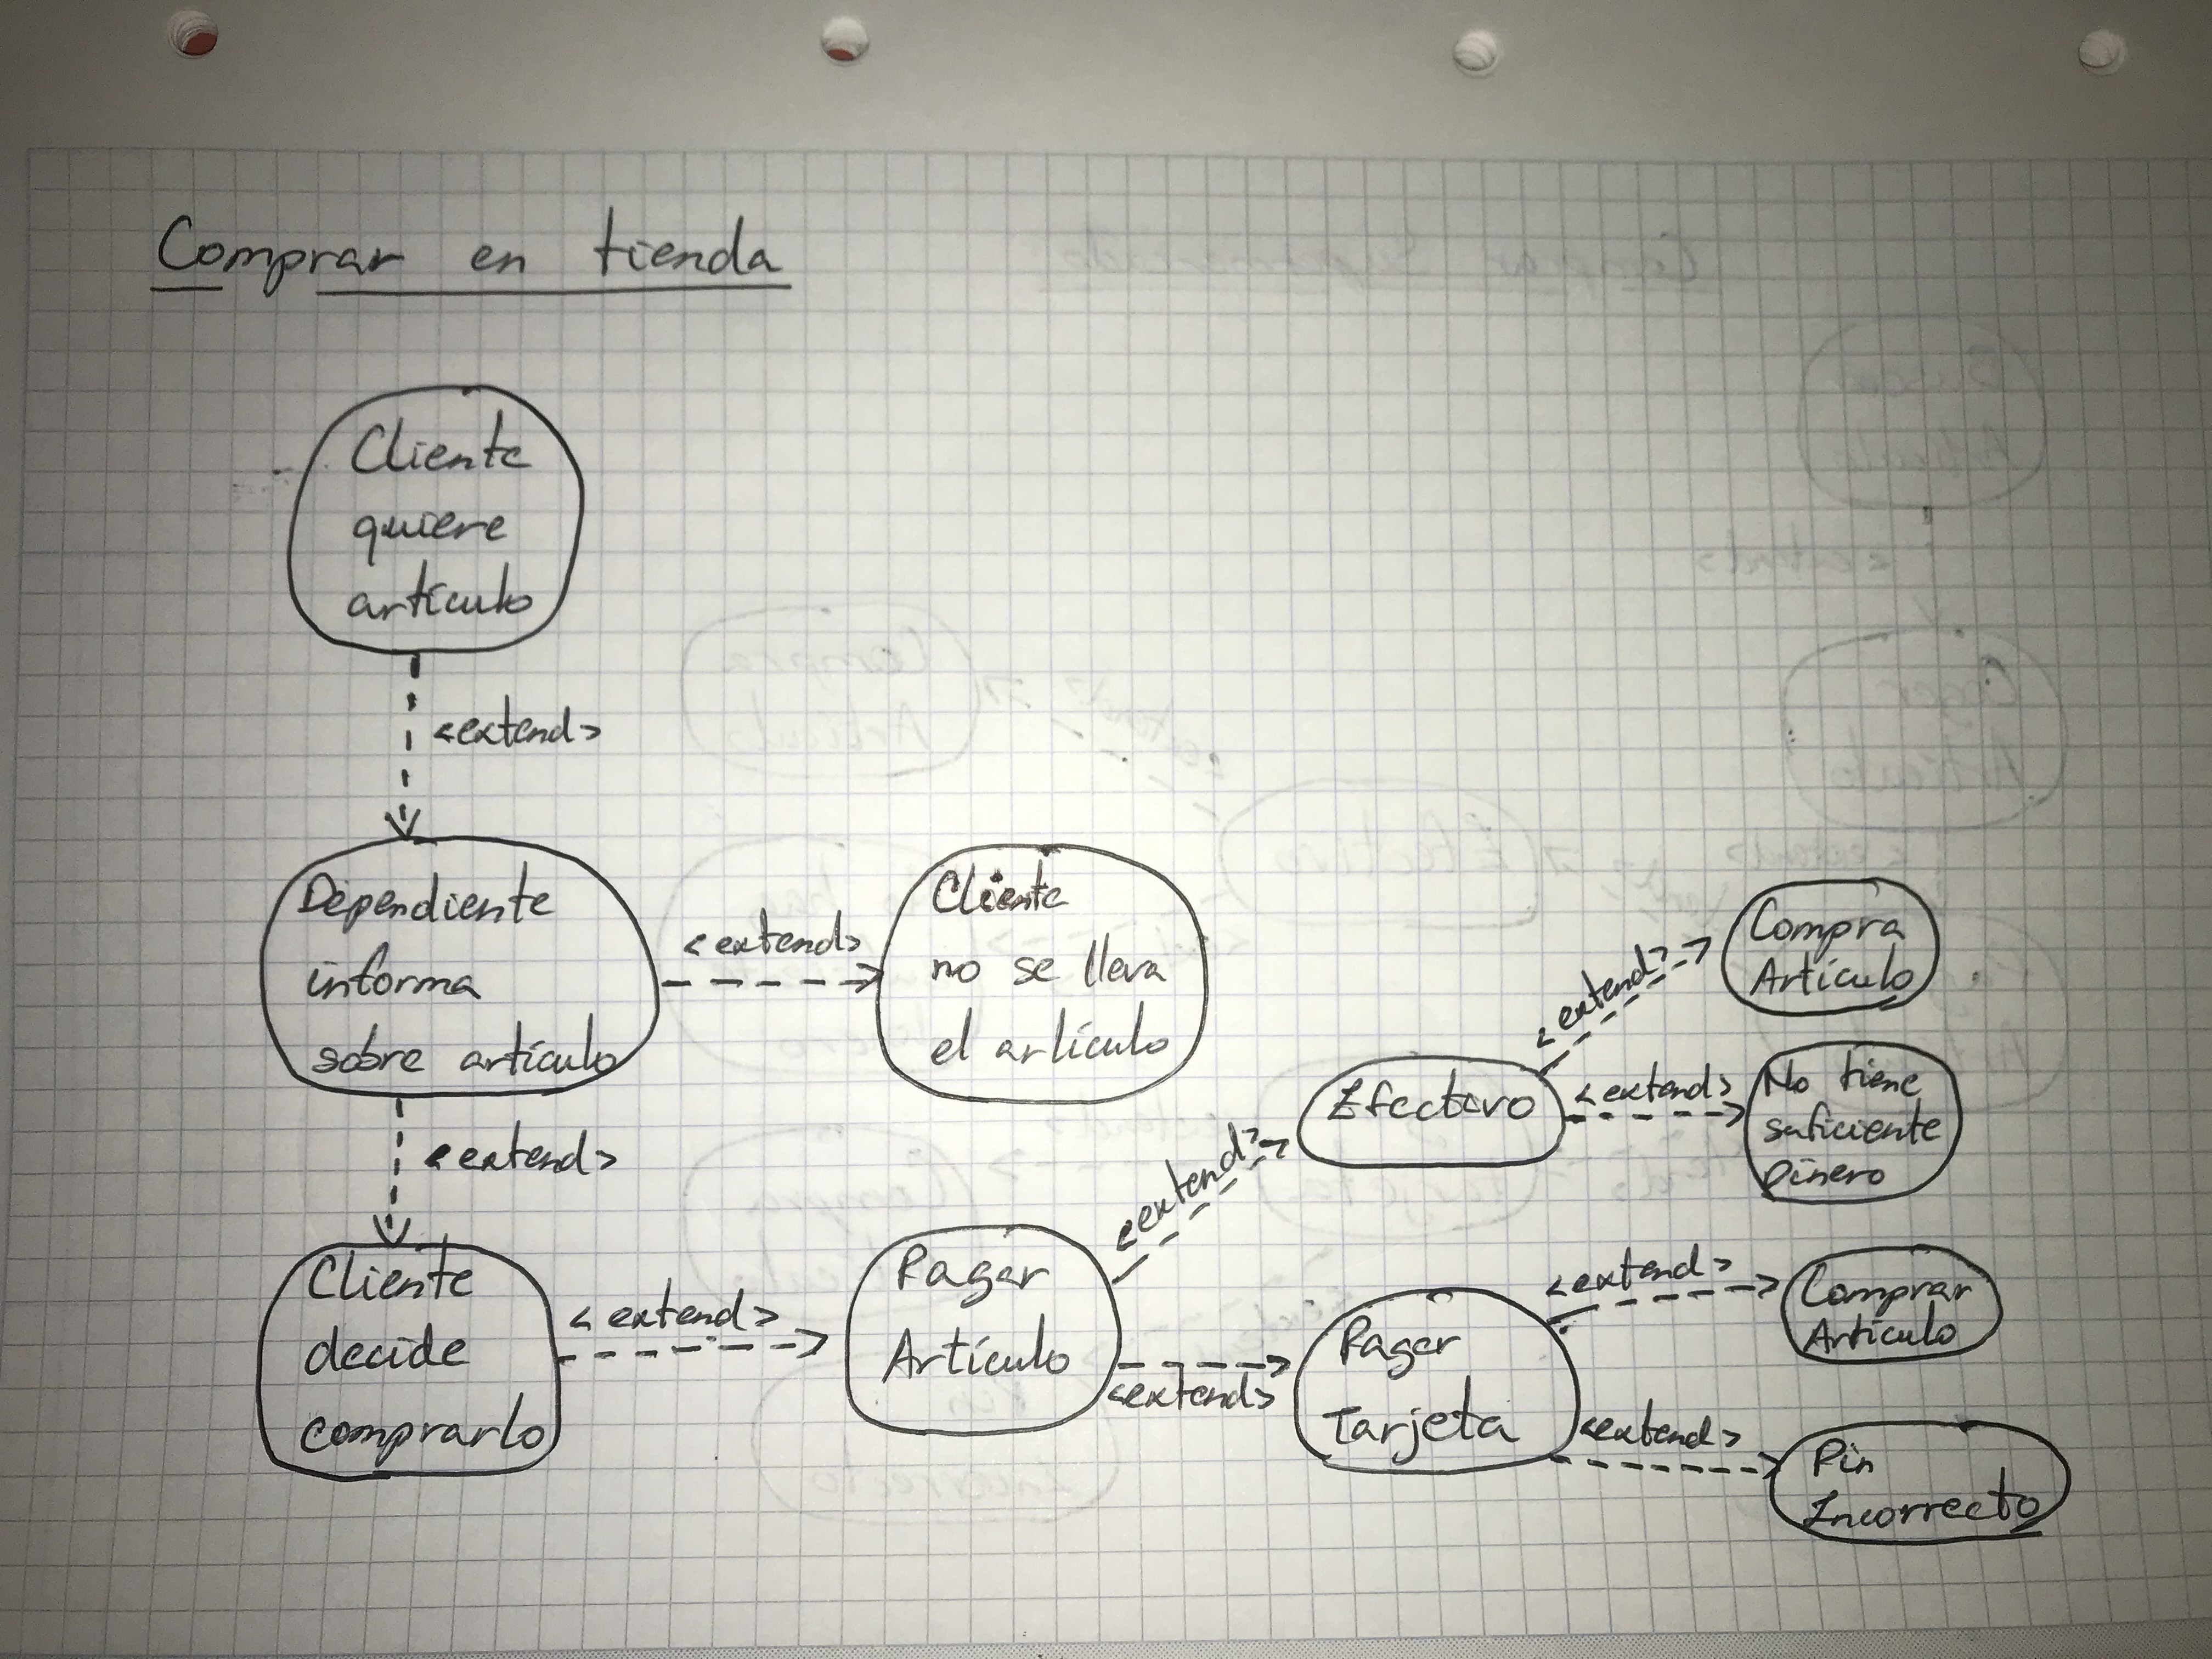 Comprar en tienda
Cliente
quiere
artículo
<extend>
Dependiente
informa
sobre artículo
<extend>
Cliente
no se lleva
el artículo
<extend>
Cliente
decide
comprarlo
<extend>
Pagar
Artículo
<extend>
Efectivo
<extend>
Compra
Artículo
<extend>
No tiene
suficiente
Dinero
<extend>
Pagar
Tarjeta
<extend>
Comprar
Artículo
<extend>
Pin
Incorrecto